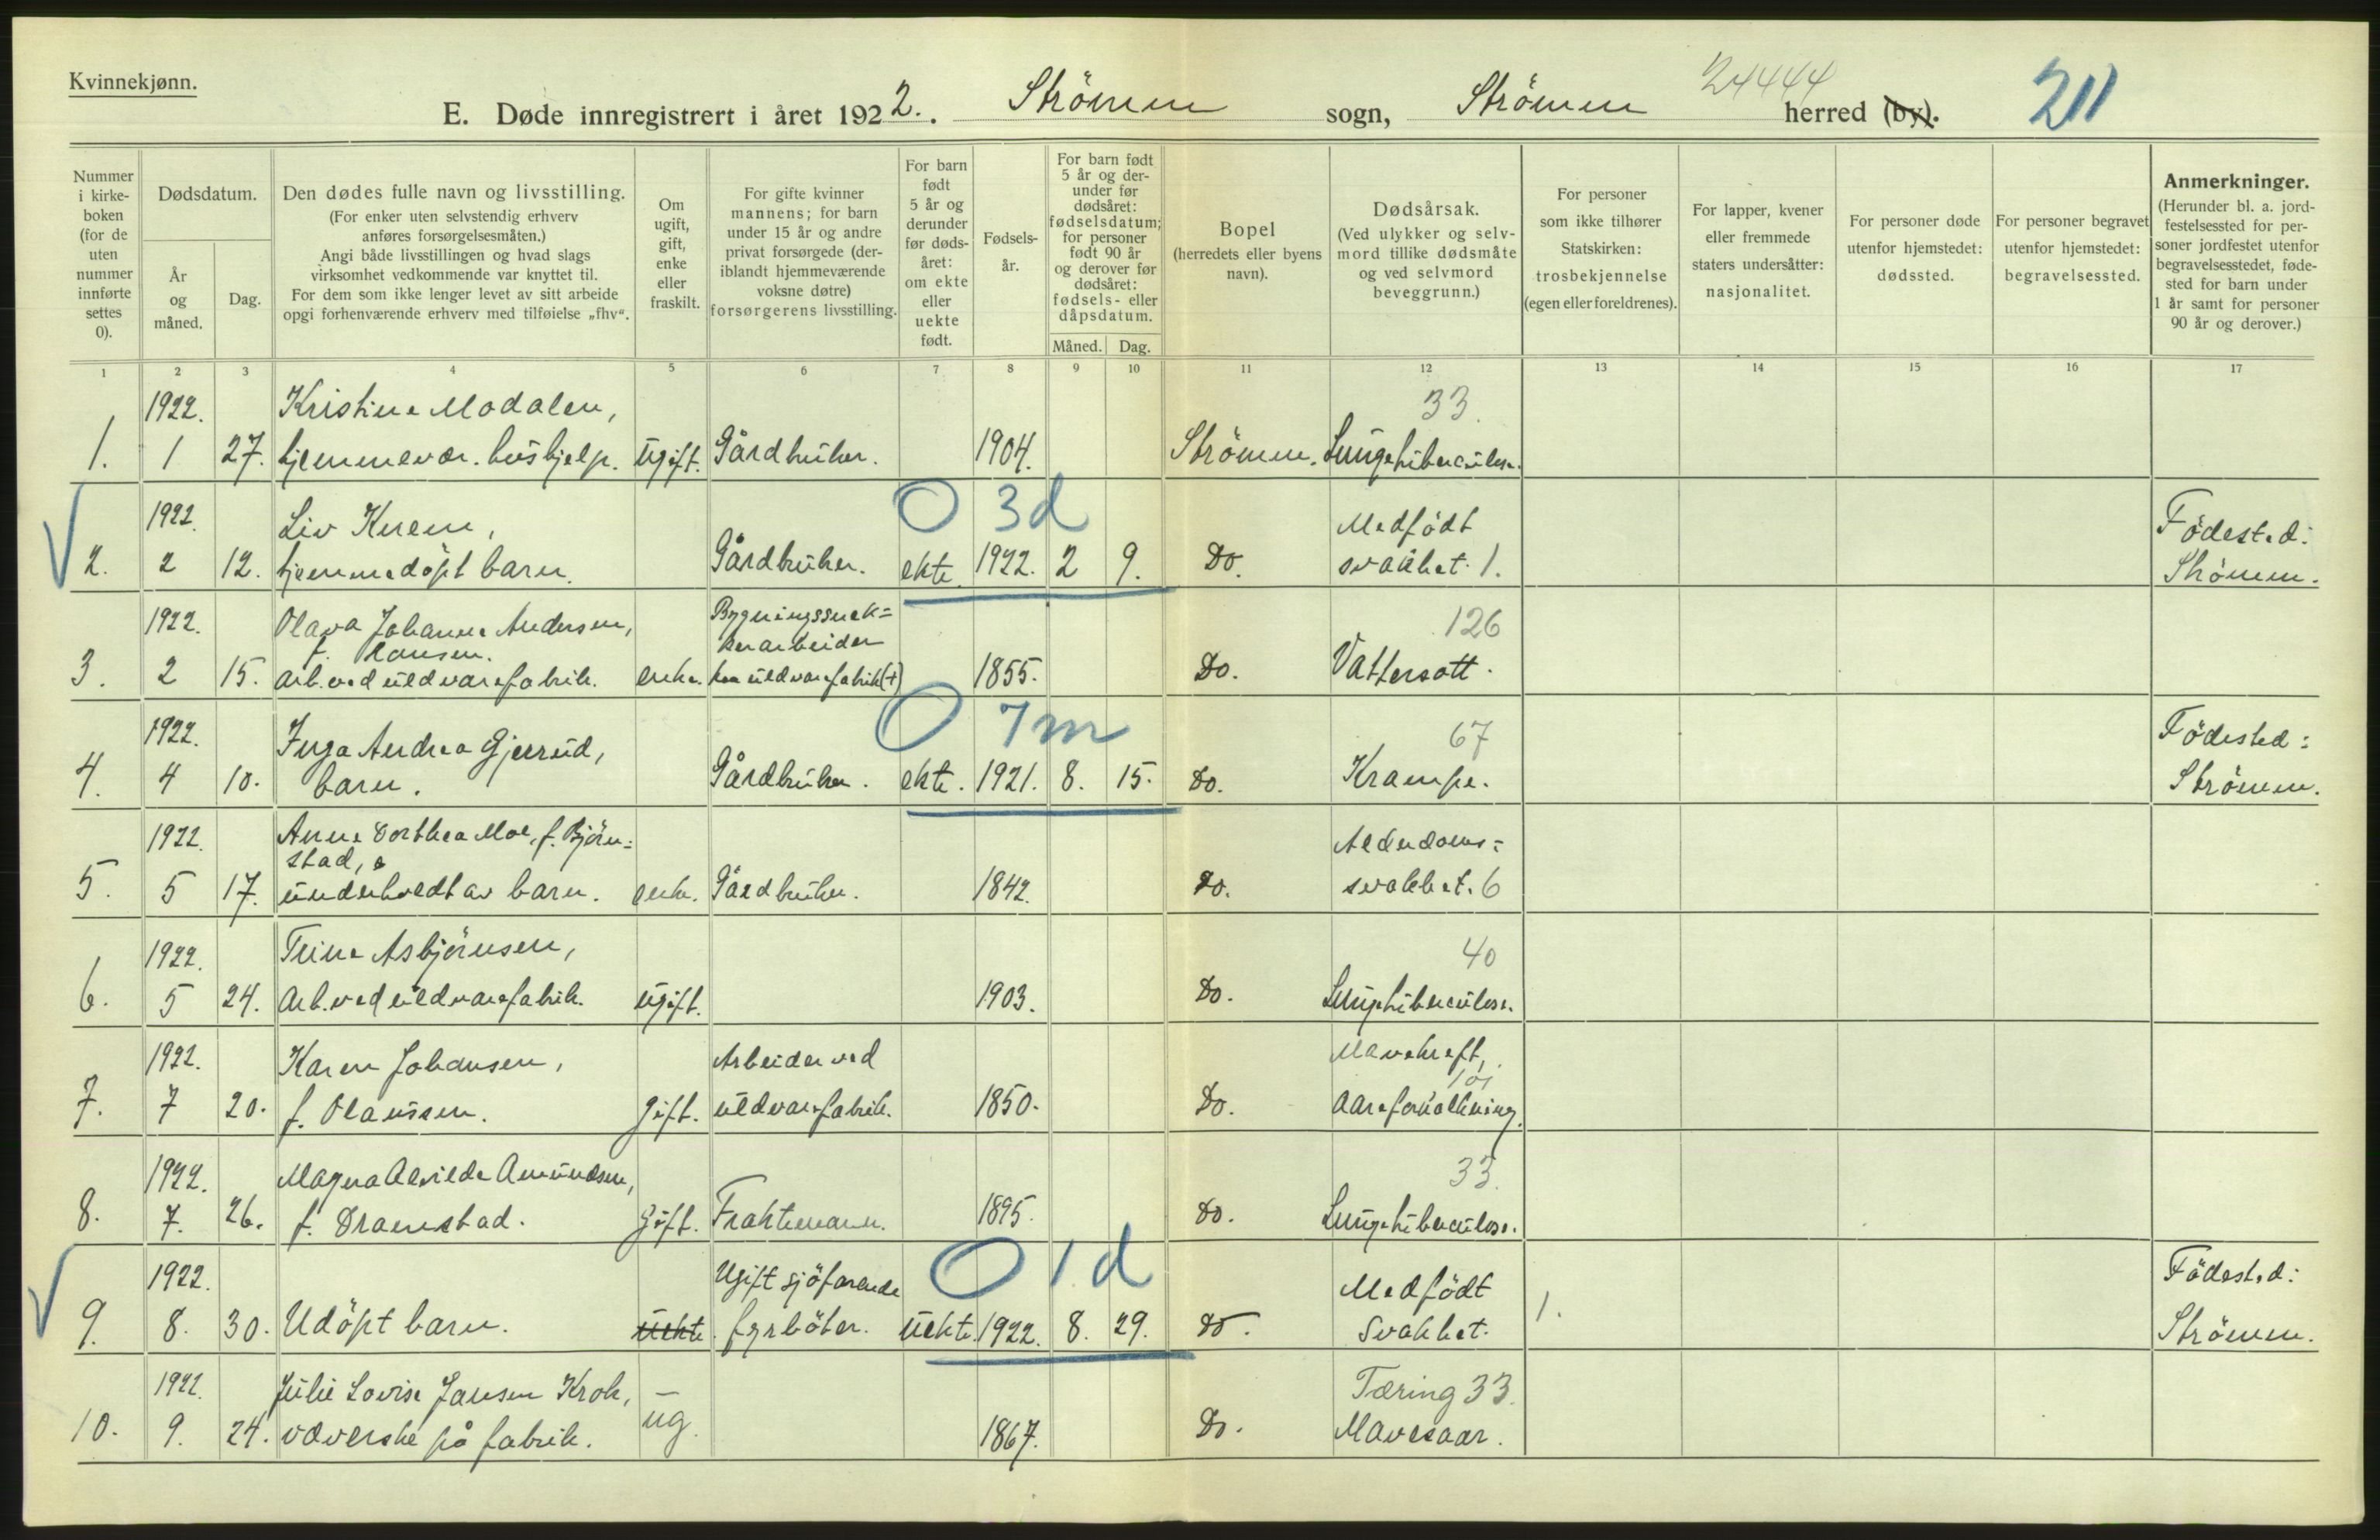 Kvinnekjønn.
E. Døde innregistrert i året 1922. Strömm sogn, Strömm herred (by). 24444 211
Nummer i kirke-boken (for de uten nummer innførte settes 0).
Dødsdatum.
År og måned.
Dag.
Den dødes fulle navn og livsstilling.
(For enker uten selvstendig erhverv
anføres forsørgelsesmåten.)
Angi både livsstillingen og hvad slags
virksomhet vedkommende var knyttet til.
For dem som ikke lenger levet av sitt arbeide
opgi forhenværende erhverv med tilføielse „fhv“.
Om ugift, gift, enke eller fraskilt.
For gifte kvinner
mannens; for barn
under 15 år og andre
privat forsørgede (der-
iblandt hjemmeværende
voksne døtre)
forsørgerens livsstilling.
For barn født 5 år og derunder før døds-året: om ekte eller uekte født.
Fødsels-år.
For barn født
5 år og der-
under før
dødsåret:
fødselsdatum;
for personer
født 90 år
og derover før
dødsåret:
fødsels- eller
dåpsdatum.
Måned. Dag.
Bopel
(herredets eller byens
navn).
Dødsårsak.
(Ved ulykker og selv-
mord tillike dødsmåte
og ved selvmord
beveggrunn.)
For personer
som ikke tilhører
Statskirken:
trosbekjennelse
(egen eller foreldrenes).
For lapper, kvener
eller fremmede
staters undersåtter:
nasjonalitet.
For personer døde
utenfor hjemstedet:
dødssted.
For personer begravet
utenfor hjemstedet:
begravelsessted.
Anmerkninger.
(Herunder bl. a. jord-
festelsessted for per-
soner jordfestet utenfor
begravelsesstedet, føde-
sted for barn under
1 år samt for personer
90 år og derover.)
1 2 3 4 5 6 7 8 9 10 11 12 13 14 15 16 17
1922. Kristine Modalen, 33.
1. 1 27. hjemmevær. hushjelp. Ugift. Gårdbruker. 1904. Strömm. Lungetuberculose.
1922. Liv Knem, O 3d Medfödt Födested:
2. 2 12. hjemmedöpt barn. Gårdbruker. ekte 1922. 2 9. Do. svakhet. 1. Strömm.
1922. Olava Johanne Andersen, Bygningssnek= 126
f. Hansen. kerarbeider
3. 2 15. arb. ved uldvarefabrik. enke. uldvarefabrik(+) 1855. Do. Vattersott.
1922. Inga Andrea Gjerrud, O 7m 67 Födested:
4. 4 10. barn. Gårdbruker. ekte. 1921. 8. 15. Do. Krampe. Strömm.
1922. Anne Dorthea Moe, f. Björn= Alderdoms=
stad,
5. 5 17. underholdt av barn. enke. Gårdbruker. 1842. Do. svakhet. 6
1922. Trine Asbjörnsen, 40
6. 5 24. Arb. ved uldvarefabrik. ugift. 1903. Do. Lungetuberculose.
1922. Karen Johansen, Arbeider ved Mavekreft,
7. 7 20. f. Olaussen. Gift. uldvarefabrik. 1850. Do. Aareforkalkning.
1922. Magna Alvilde Amundsen, 33.
8. 7. 26. f. Dramstad. Gift. Fraktemann. 1895. Do. Lungetuberculose.
1922. Ugift sjöfarende O 1 d Medfödt Födested:
9. 8. 30. Udöpt barn. uekte. fyrböter. Uekte. 1922. 8. 29. Do. Svakhet. 1. Strömm.
1922. Julie Lovise Jansen Krok, – Tæring 33.
10. 9. 24. væverske på fabrik. ug. 1867. Do. Mavesaar.